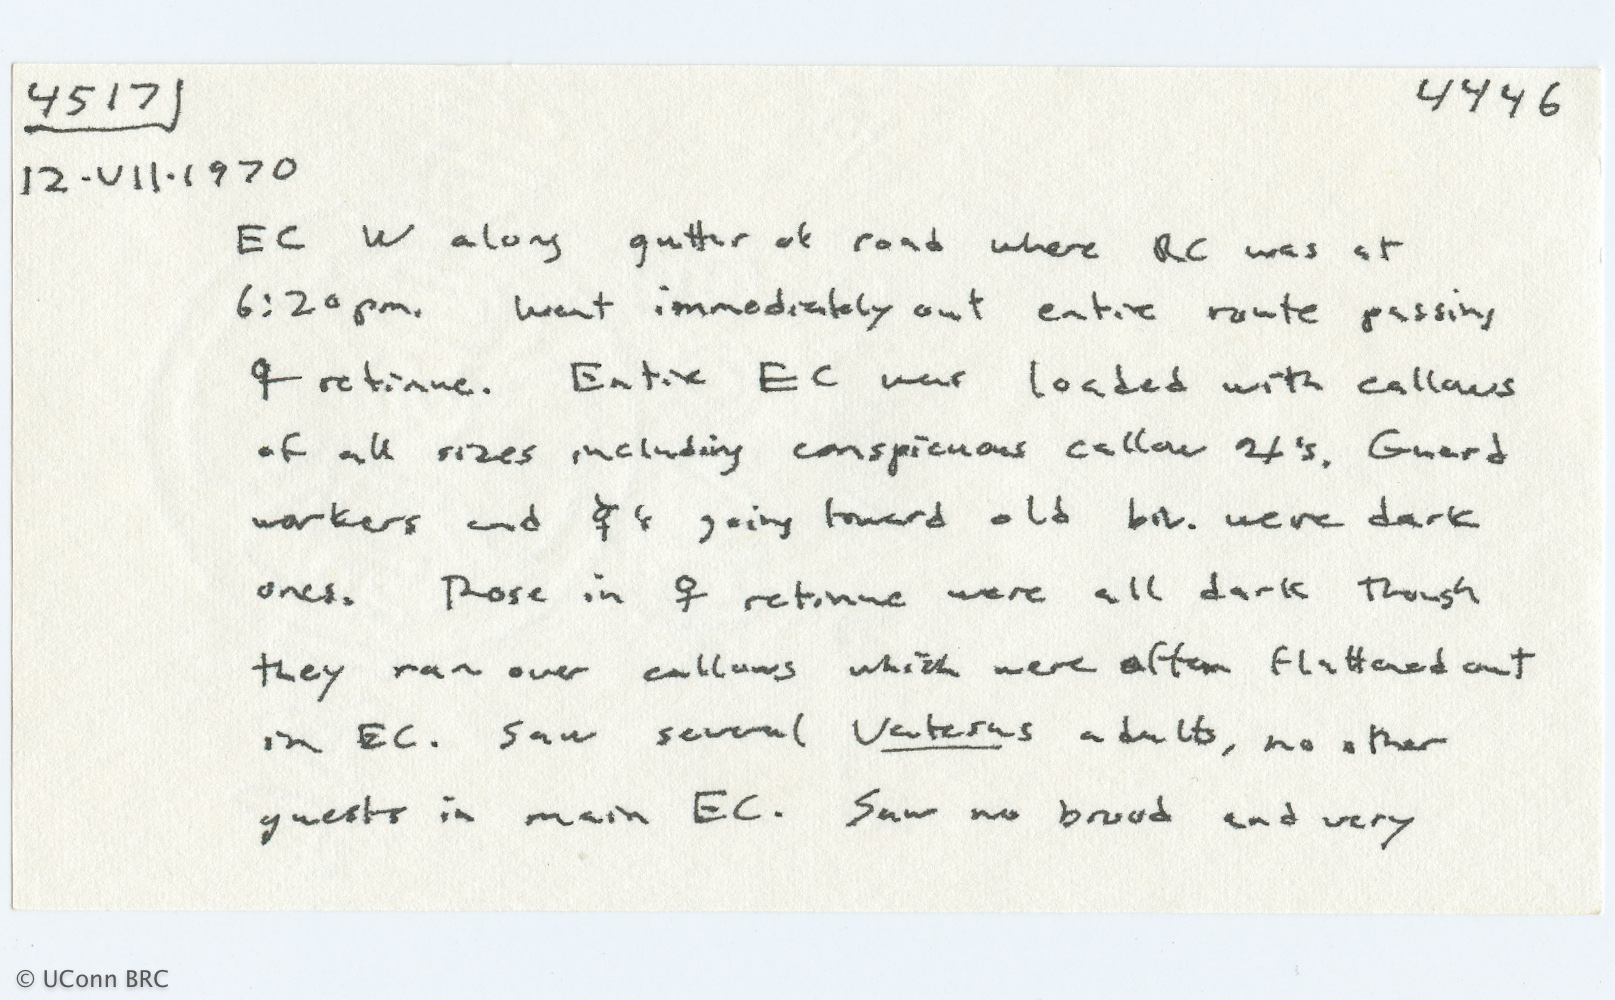 4517 4446
12·VII·1970
EC W along gutter of road where RC was at
6:20pm. Went immediately out entire route passing
♀ retinue. Entire EC was loaded with callows
of all sizes including conspicuous callow ♃'s. Guard
workers and ☿'s going toward old biv. were dark
ones. Those in ♀ retinue were all dark though
they ran over callows which were often flattened out
in EC. Saw several Vatesus adults, no other
guests in main EC. Saw no brood and very
© UConn BRC